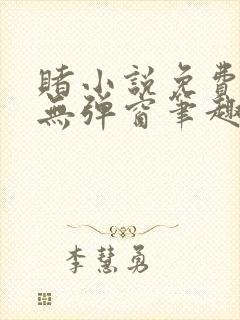 賭小說免費
無彈窗筆趣
李慧勇